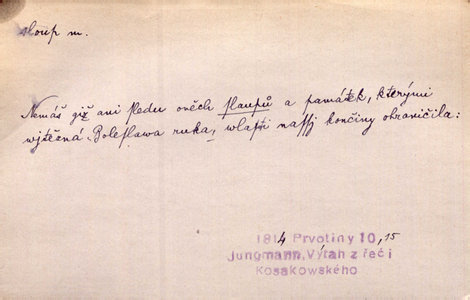 sloup m.
Nemáš giž ani sledu oněch slaupů a památek, kterými
wjtězná Boleslawa ruka, wlasti nassj končiny ohraničila:
1814 Prvotiny 10, 15
Jungmann, Výtah z řeči
Kosakowského